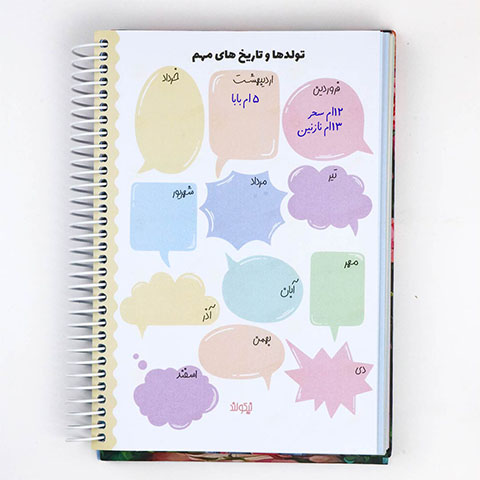 تولدها و تاریخ های مهم
فروردین
۱۲ام سحر
۱۳ام نازنین
اردیبهشت
۵ام بابا
خرداد
تیر
مرداد
شهریور
مهر
آبان
آذر
دی
بهمن
اسفند